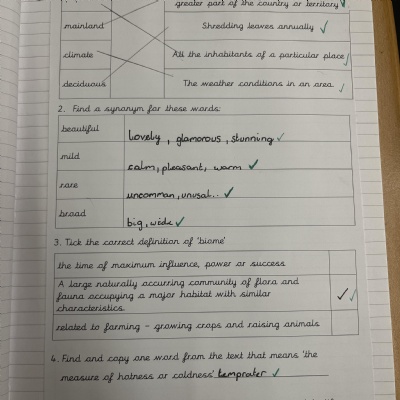 greater part of the country or territory
mainland
Shredding leaves annually
climate
All the inhabitants of a particular place
deciduous
The weather conditions in an area.
2. Find a synonym for these words:
beautiful
lovely, glamorous, stunning
mild
calm, pleasant, warm
rare
uncomman, unusal..
broad
big, wide
3. Tick the correct definition of 'biome'
the time of maximum influence, power or success
A large naturally occurring community of flora and
fauna occupying a major habitat with similar
characteristics.
related to farming - growing crops and raising animals
4. Find and copy one word from the text that means 'the
measure of hotness or coldness' temprater